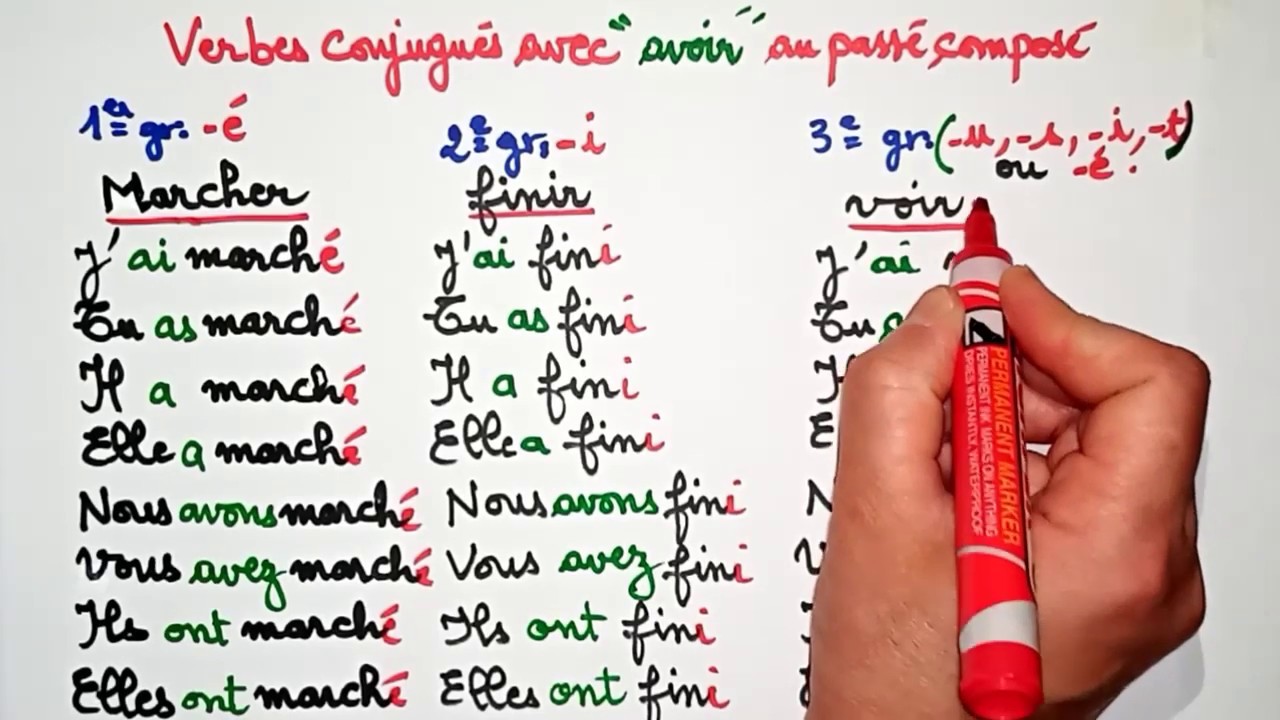 Verbes conjugués avec "avoir" au passé composé
1er gr. -é
2e gr. -i
3e gr. (-u, -s, -i, -t)
ou -é.
Marcher
J'ai marché
Tu as marché
Il a marché
Elle a marché
Nous avons marché
Vous avez marché
Ils ont marché
Elles ont marché
finir
J'ai fini
Tu as fini
Il a fini
Elle a fini
Nous avons fini
Vous avez fini
Ils ont fini
Elles ont fini
voir
J'ai
Tu
PERMANENT MARKER
PERMANENT INK MARKS ON ANYTHING
DRIES INSTANTLY, WATERPROOF